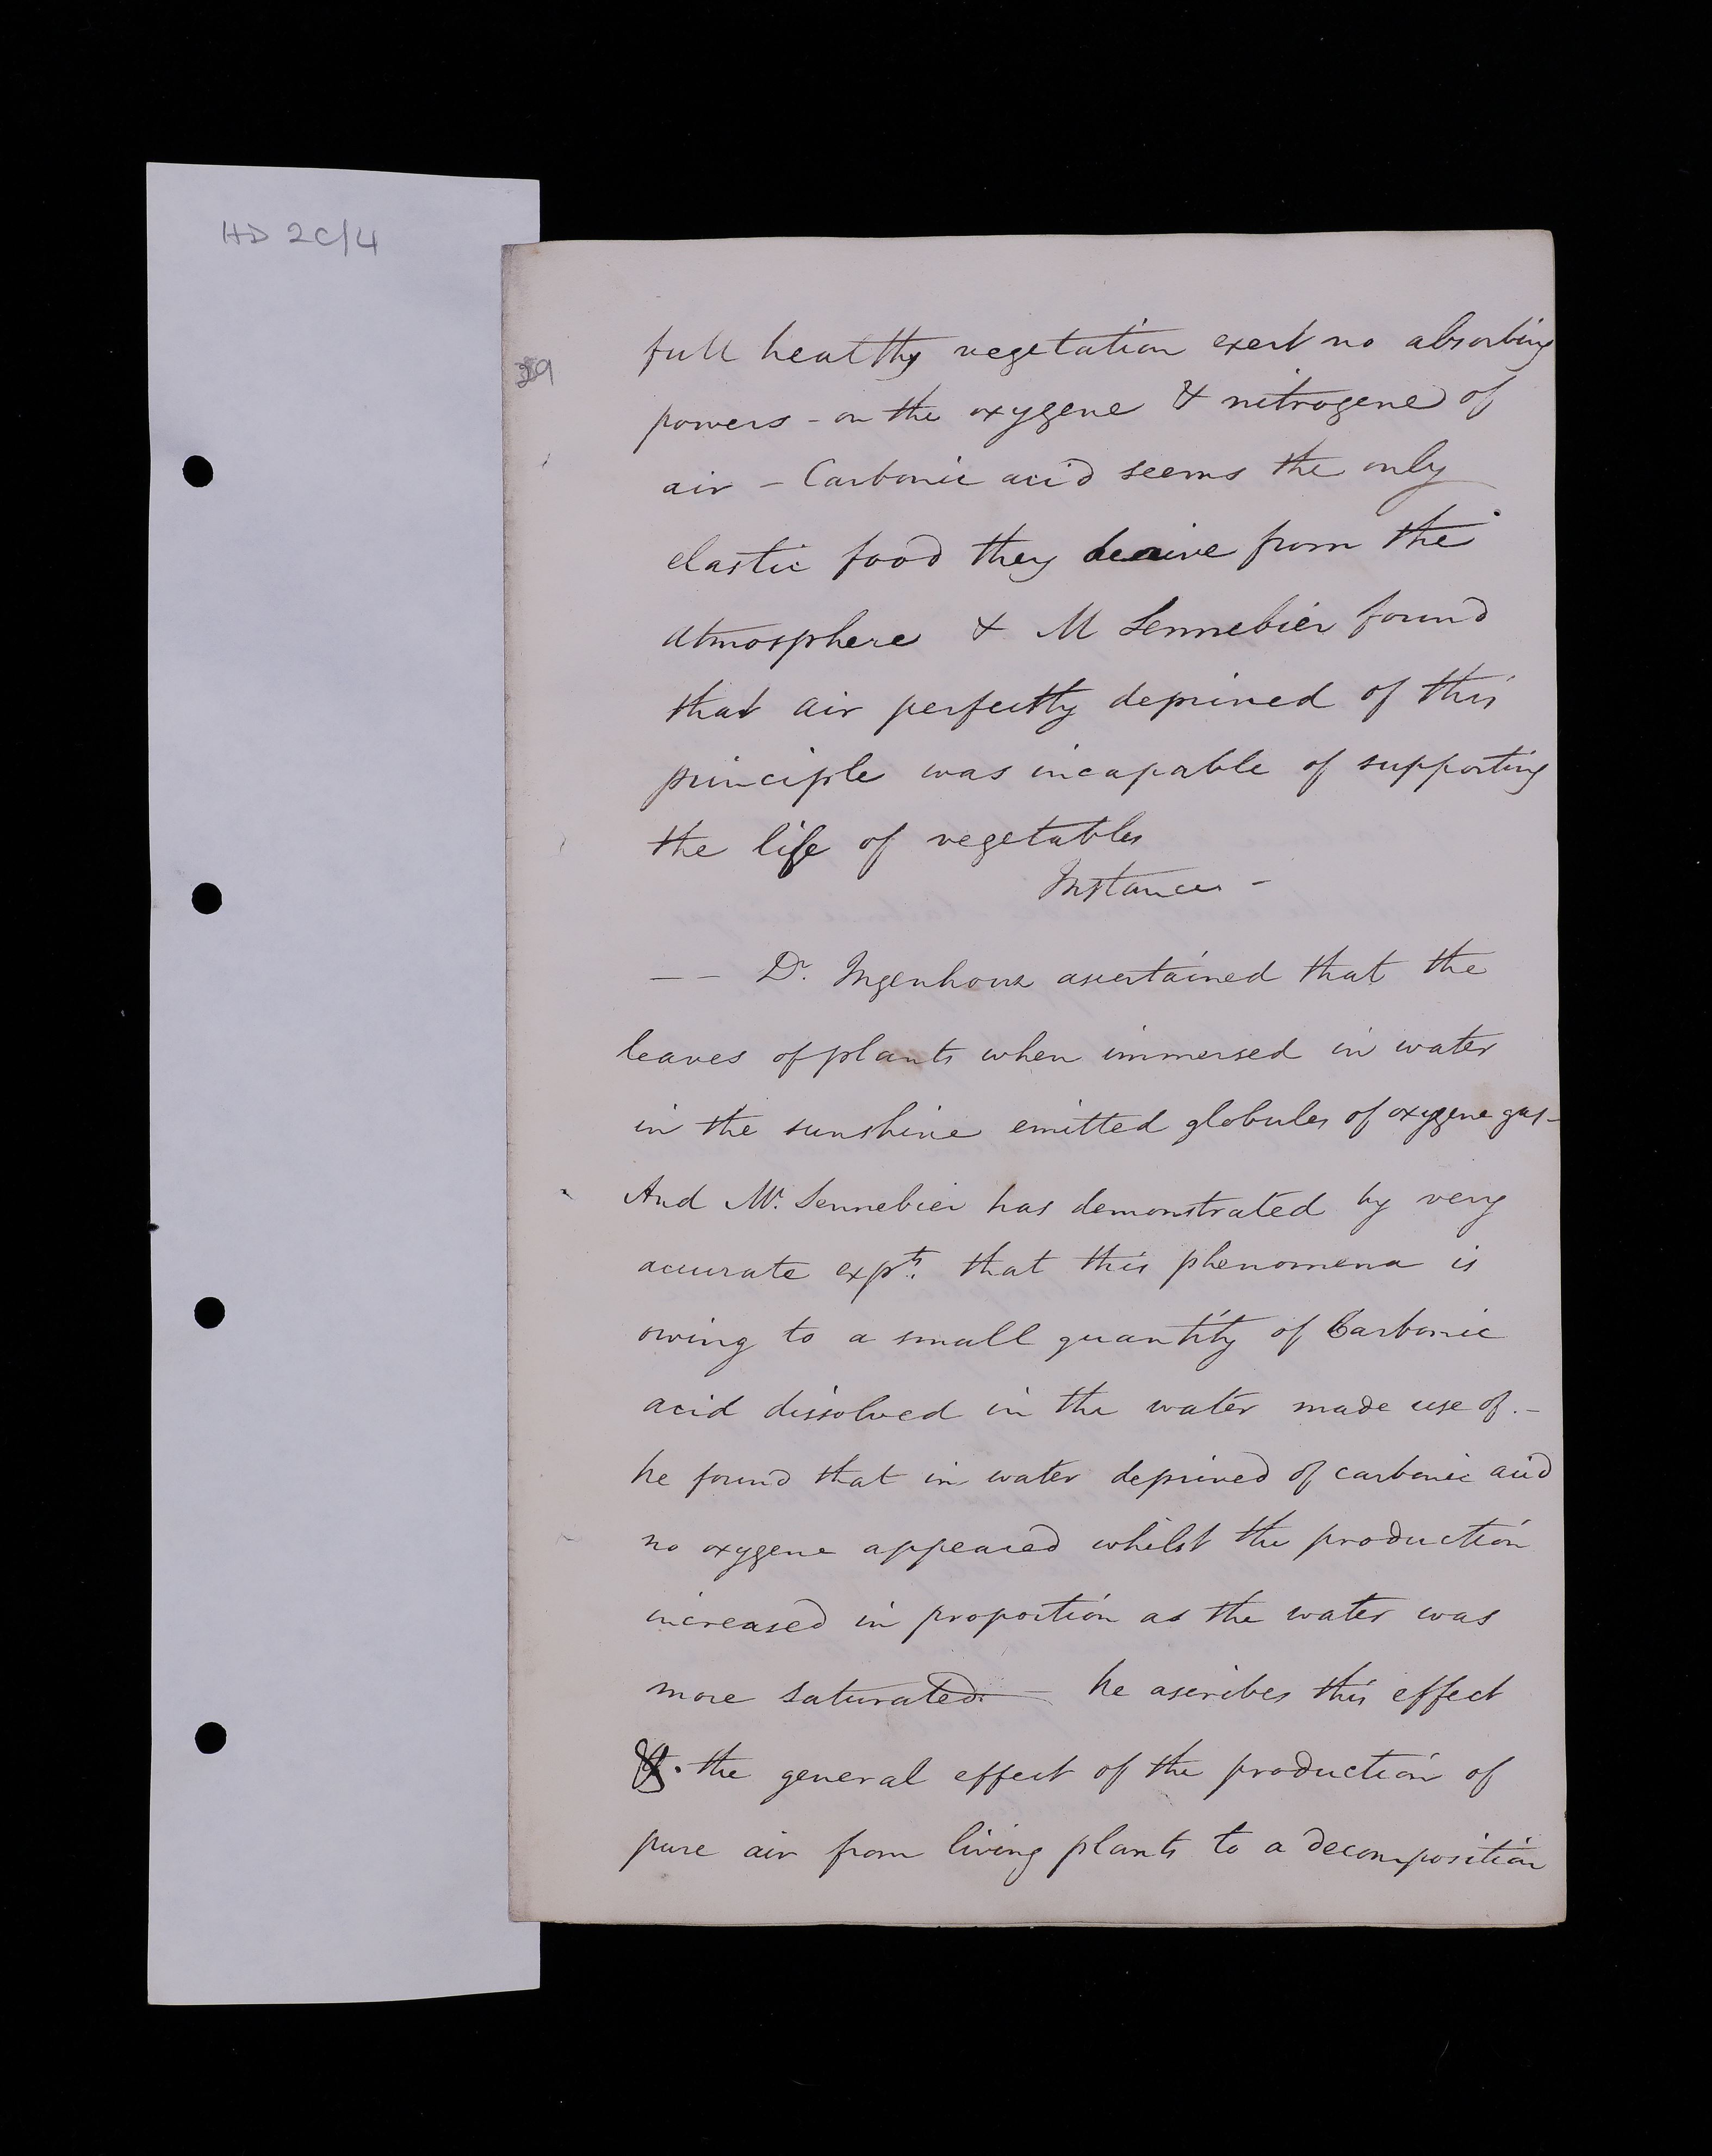 HD 2C/4
29
full healthy vegetation exert no absorbing
powers - on the oxygene & nitrogene of
air - Carbonic acid seems the only
elastic food they derive from the
atmosphere & M Sennebier found
that air perfectly deprived of this
principle was incapable of supporting
the life of vegetables
Instances -
— — Dr. Ingenhouz ascertained that the
leaves of plants when immersed in water
in the sunshine emitted globules of oxygene gas -
And Mr. Sennebier has demonstrated by very
accurate expts. that this phenomena is
owing to a small quantity of Carbonic
acid dissolved in the water made use of. -
he found that in water deprived of carbonic acid
no oxygene appeared whilst the production
increased in proportion as the water was
more saturated. — he ascribes this effect
&. the general effect of the production of
pure air from living plants to a decomposition